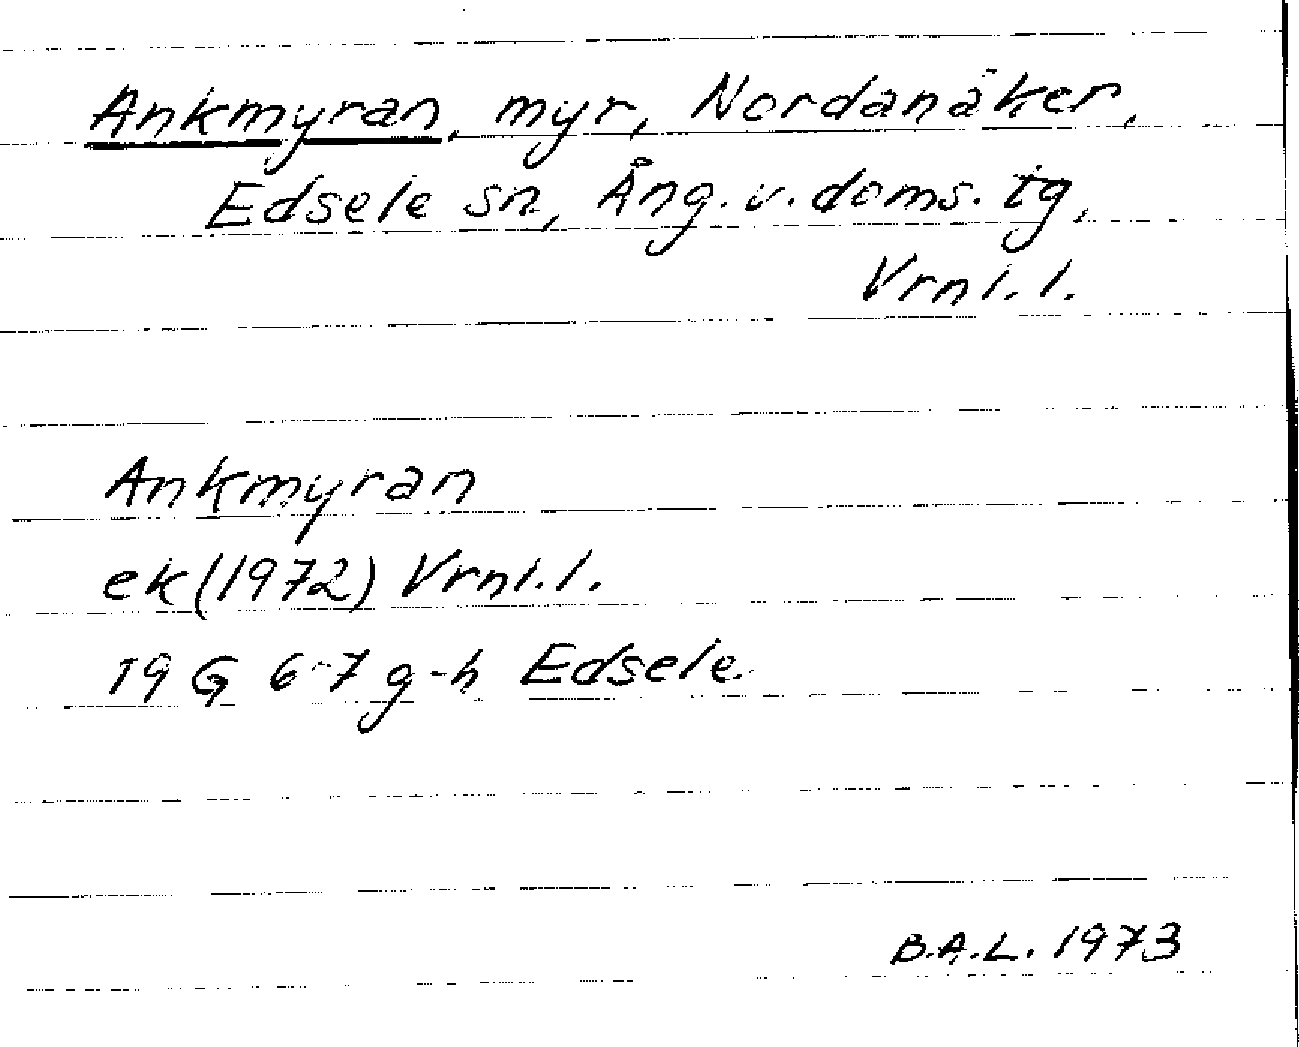 Ankmyran, myr, Nordanåker,
Edsele sn, Ång. v. doms. tg,
Vrnl. l.
Ankmyran
ek (1972) Vrnl. l.
19 G 6-7 g-h Edsele
B.A.L. 1973